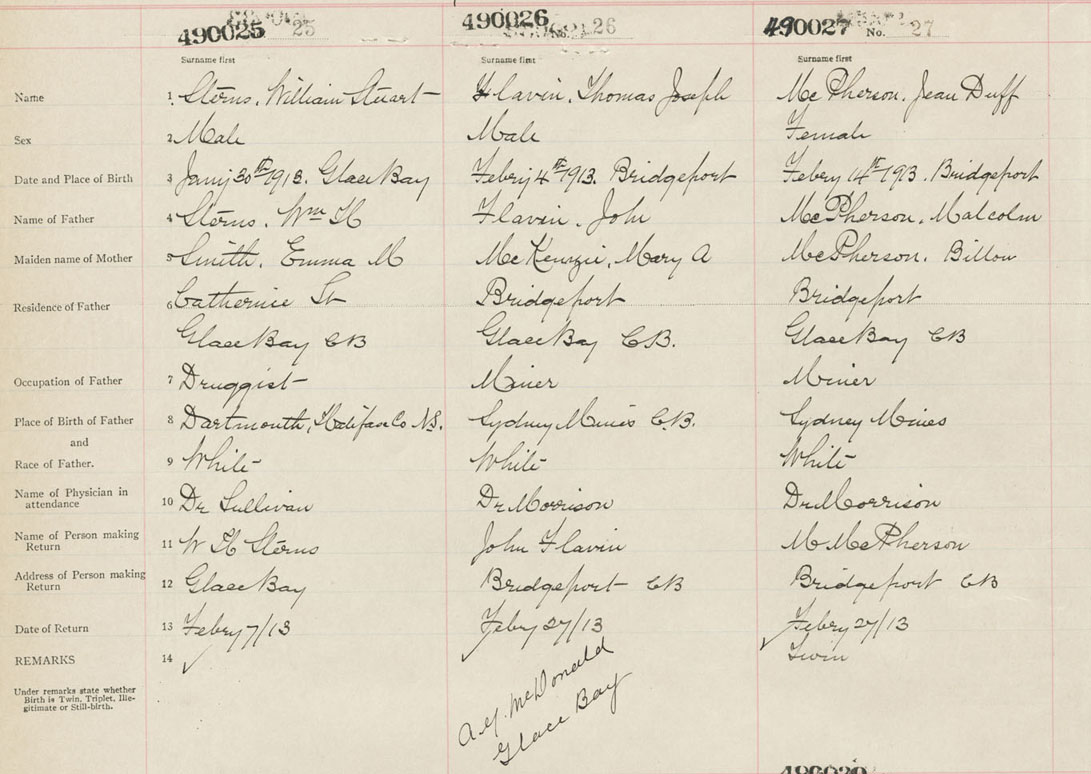 490025 25 490026 26 490027 No. 27
Surname first Surname first Surname first
Name 1 Sterns, William Stuart Flavin, Thomas Joseph McPherson, Jean Duff
Sex 2 Male Male Female
Date and Place of Birth 3 Jany 30th 1913. Glace Bay Febry 4th 1913. Bridgeport Febry 14th 1913. Bridgeport
Name of Father 4 Sterns, Wm H Flavin, John McPherson, Malcolm
Maiden name of Mother 5 Smith, Emma M McKenzie, Mary A McPherson,
Residence of Father 6 Catherine St Bridgeport Bridgeport
Glace Bay CB Glace Bay C.B. Glace Bay CB
Occupation of Father 7 Druggist Miner Miner
Place of Birth of Father 8 Dartmouth, Halifax Co N.S. Sydney Mines C.B. Sydney Mines
and
Race of Father. 9 White White White
Name of Physician in attendance 10 Dr Sullivan Dr Morrison Dr Morrison
Name of Person making Return 11 W H Sterns John Flavin M McPherson
Address of Person making Return 12 Glace Bay Bridgeport CB Bridgeport CB
Date of Return 13 Febry 7/13 Febry 27/13 Febry 27/13
REMARKS 14 Twin
Under remarks state whether
Birth is Twin, Triplet, Ille-
gitimate or Still-birth.
McDonald
Glace Bay